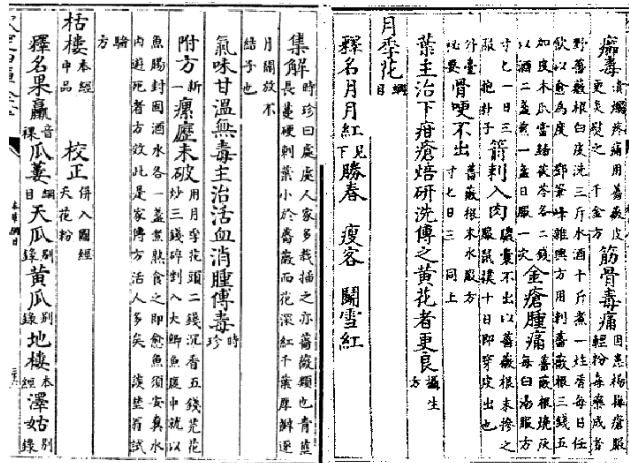 癰毒潰爛疼痛用薔薇皮更炙熨之 千金方 筋骨毒痛因患楊梅瘡服輕粉毒藥成者
野薔薇根白皮洗三斤水酒十斤煮一炷香每日任
飲以愈爲度 鄧筆峰雜興方用刺薔薇根三錢五
加皮木瓜當歸茯苓各二錢
以酒二盞煎一盞日服一次 金瘡腫痛薔薇根燒灰每白湯服方
寸匕一日三服 抱朴子 箭刺入肉膿囊不出以薔薇根末摻之服鼠撲十日即穿皮出也
外臺祕要 骨哽不出薔薇根末水服方寸匕日三 同上
月季花綱目
釋名月月紅見下 勝春 瘦客 鬭雪紅
葉主治下疳瘡焙研洗傅之黃花者更良攝生方
集解時珍曰處處人家多栽插之亦薔薇類也青莖長蔓硬刺葉小於薔薇而花深紅千葉厚瓣逐
月開放不結子也
氣味甘溫無毒主治活血消腫傅毒時珍
附方新一 瘰癧未破用月季花頭二錢沉香五錢芫花炒三錢碎剉入大鯽魚腹中就以
魚腸封固酒水各一盞煮熟食之即愈魚須安糞水
內遊死者方效此是家傳方活人多矣 談埜翁試
驗方
栝樓本經中品 校正併入圖經天花粉
釋名果臝音裸 瓜蔞綱目 天瓜別錄 黃瓜別錄 地樓本經 澤姑別錄